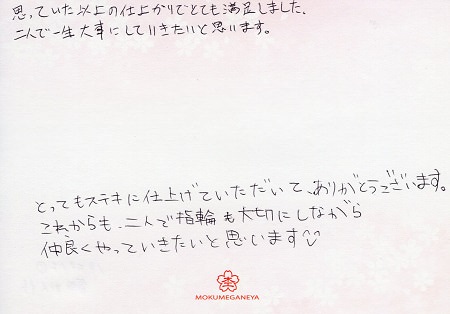 思っていた以上の仕上がりでとても満足しました。
二人で一生大事にしていきたいと思います。
とってもステキに仕上げていただいて、ありがとうございます。
これからも、二人で指輪も大切にしながら
仲良くやっていきたいと思います♡
MOKUMEGANEYA